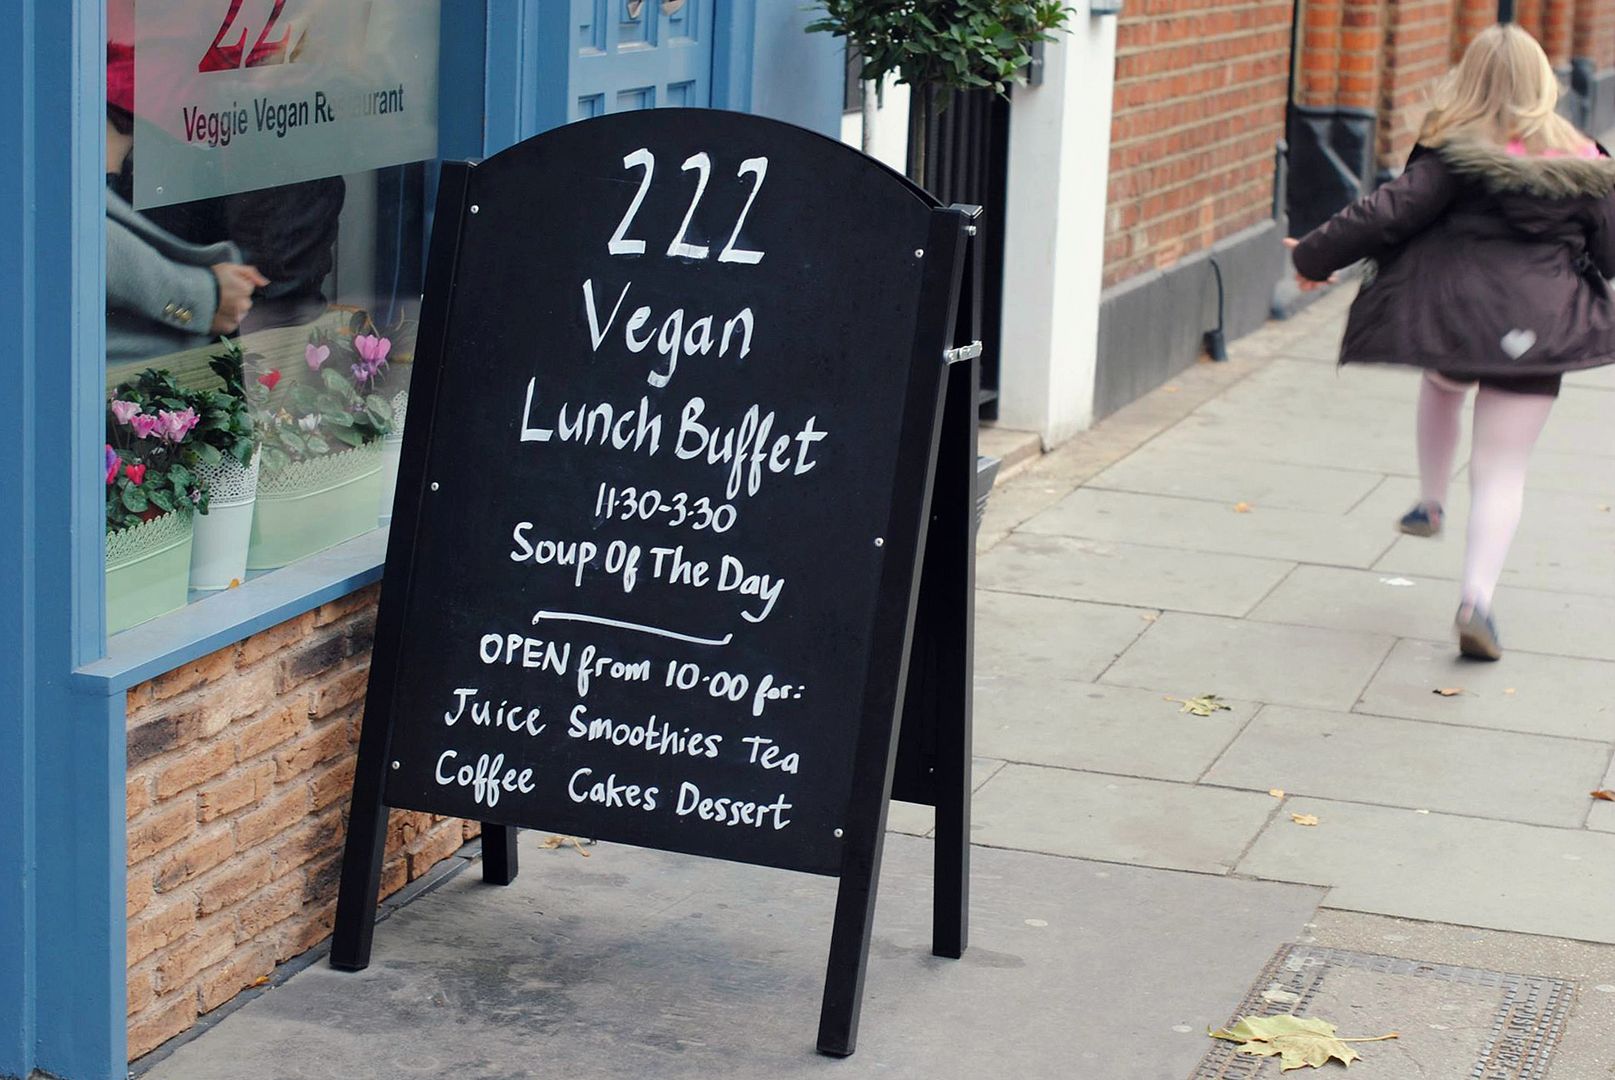 222
Veggie Vegan Restaurant
222
Vegan
Lunch Buffet
11·30-3·30
Soup Of The Day
OPEN from 10·00 for:
Juice Smoothies Tea
Coffee Cakes Dessert